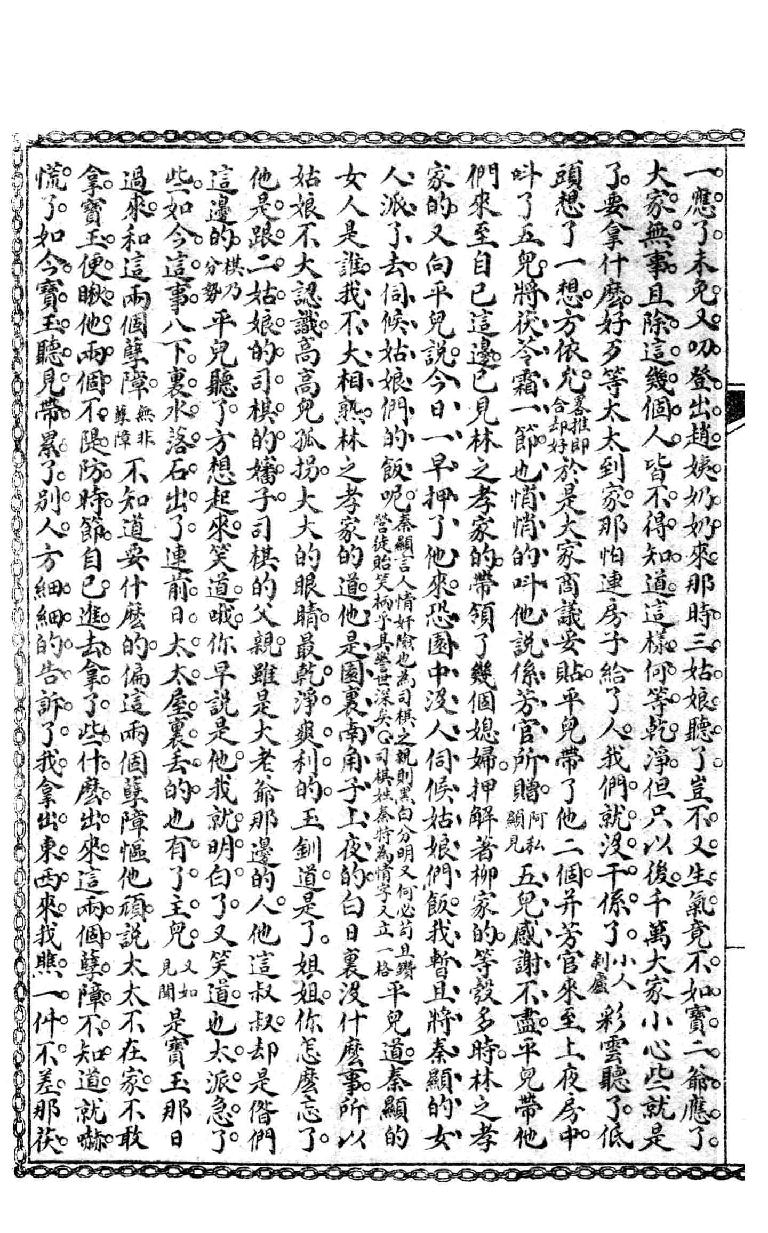 一應了未免又叨登出趙姨奶奶來那時三姑娘聽了豈不又生氣竟不如寶二爺應了
大家無事且除這幾個人皆不得知道這樣何等乾淨但只以後千萬大家小心些就是
了要拿什麽好歹等太太到家那怕連房子給了人我們就沒干係了小人剌靨彩雲聽了低
頭想了一想方依允畧推即合却好於是大家商議妥貼平兒帶了他二個并芳官來至上夜房中
呌了五兒將茯苓霜一節也悄悄的呌他説係芳官所贈阿私顯見五兒感謝不盡平兒帶他
們來至自已這邊已見林之孝家的帶領了幾個媳婦押解著柳家的等彀多時林之孝
家的又向平兒説今日一早押了他來恐園中沒人伺候姑娘們飯我暫且將秦顯的女
人派了去伺候姑娘們的飯呢秦顯言人情奸險也為司棋之親則黑白分明又何必茍且鑽營徒貽笑柄乎其警世深矣司棋姓秦特為情字又立一格平兒道秦顯的
女人是誰我不大相熟林之孝家的道他是園裏南角子上夜的白日裏沒什麽事所以
姑娘不大認識高高兒孤拐大大的眼睛最乾淨爽利的玉釧道是了姐姐你怎麽忘了
他是跟二姑娘的司棋的嬸子司棋的父親雖是大老爺那邊的人他這叔叔却是偺們
這邊的棋乃分勢平兒聽了方想起來笑道哦你早説是他我就明白了又笑道也太派急了
些如今這事八下裏水落石出了連前日太太屋裏丢的也有了主兒又如見聞是寶玉那日
過來和這兩個孽障無非孽障不知道要什麽的偏這兩個孽障慪他頑説太太不在家不敢
拿寶玉便瞅他兩個不隄防時節自已進去拿了些什麽出來這兩個孽障不知道就嚇
慌了如今寶玉聽見帶累了别人方細細的告訴了我拿出東西來我瞧一件不差那茯